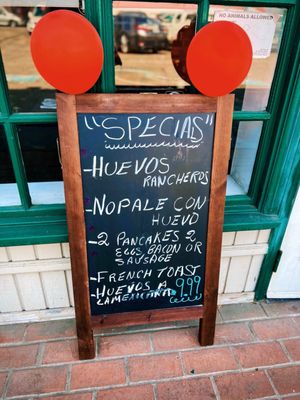 NO ANIMALS ALLOWED
"SPECIALS"
-HUEVOS
RANCHEROS
-NOPALE CON
HUEVO
-2 PANCAKES 2
EGGS BACON OR
SAUSAGE
-FRENCH TOAST
-HUEVOS A
LA MEXICANA 9.99